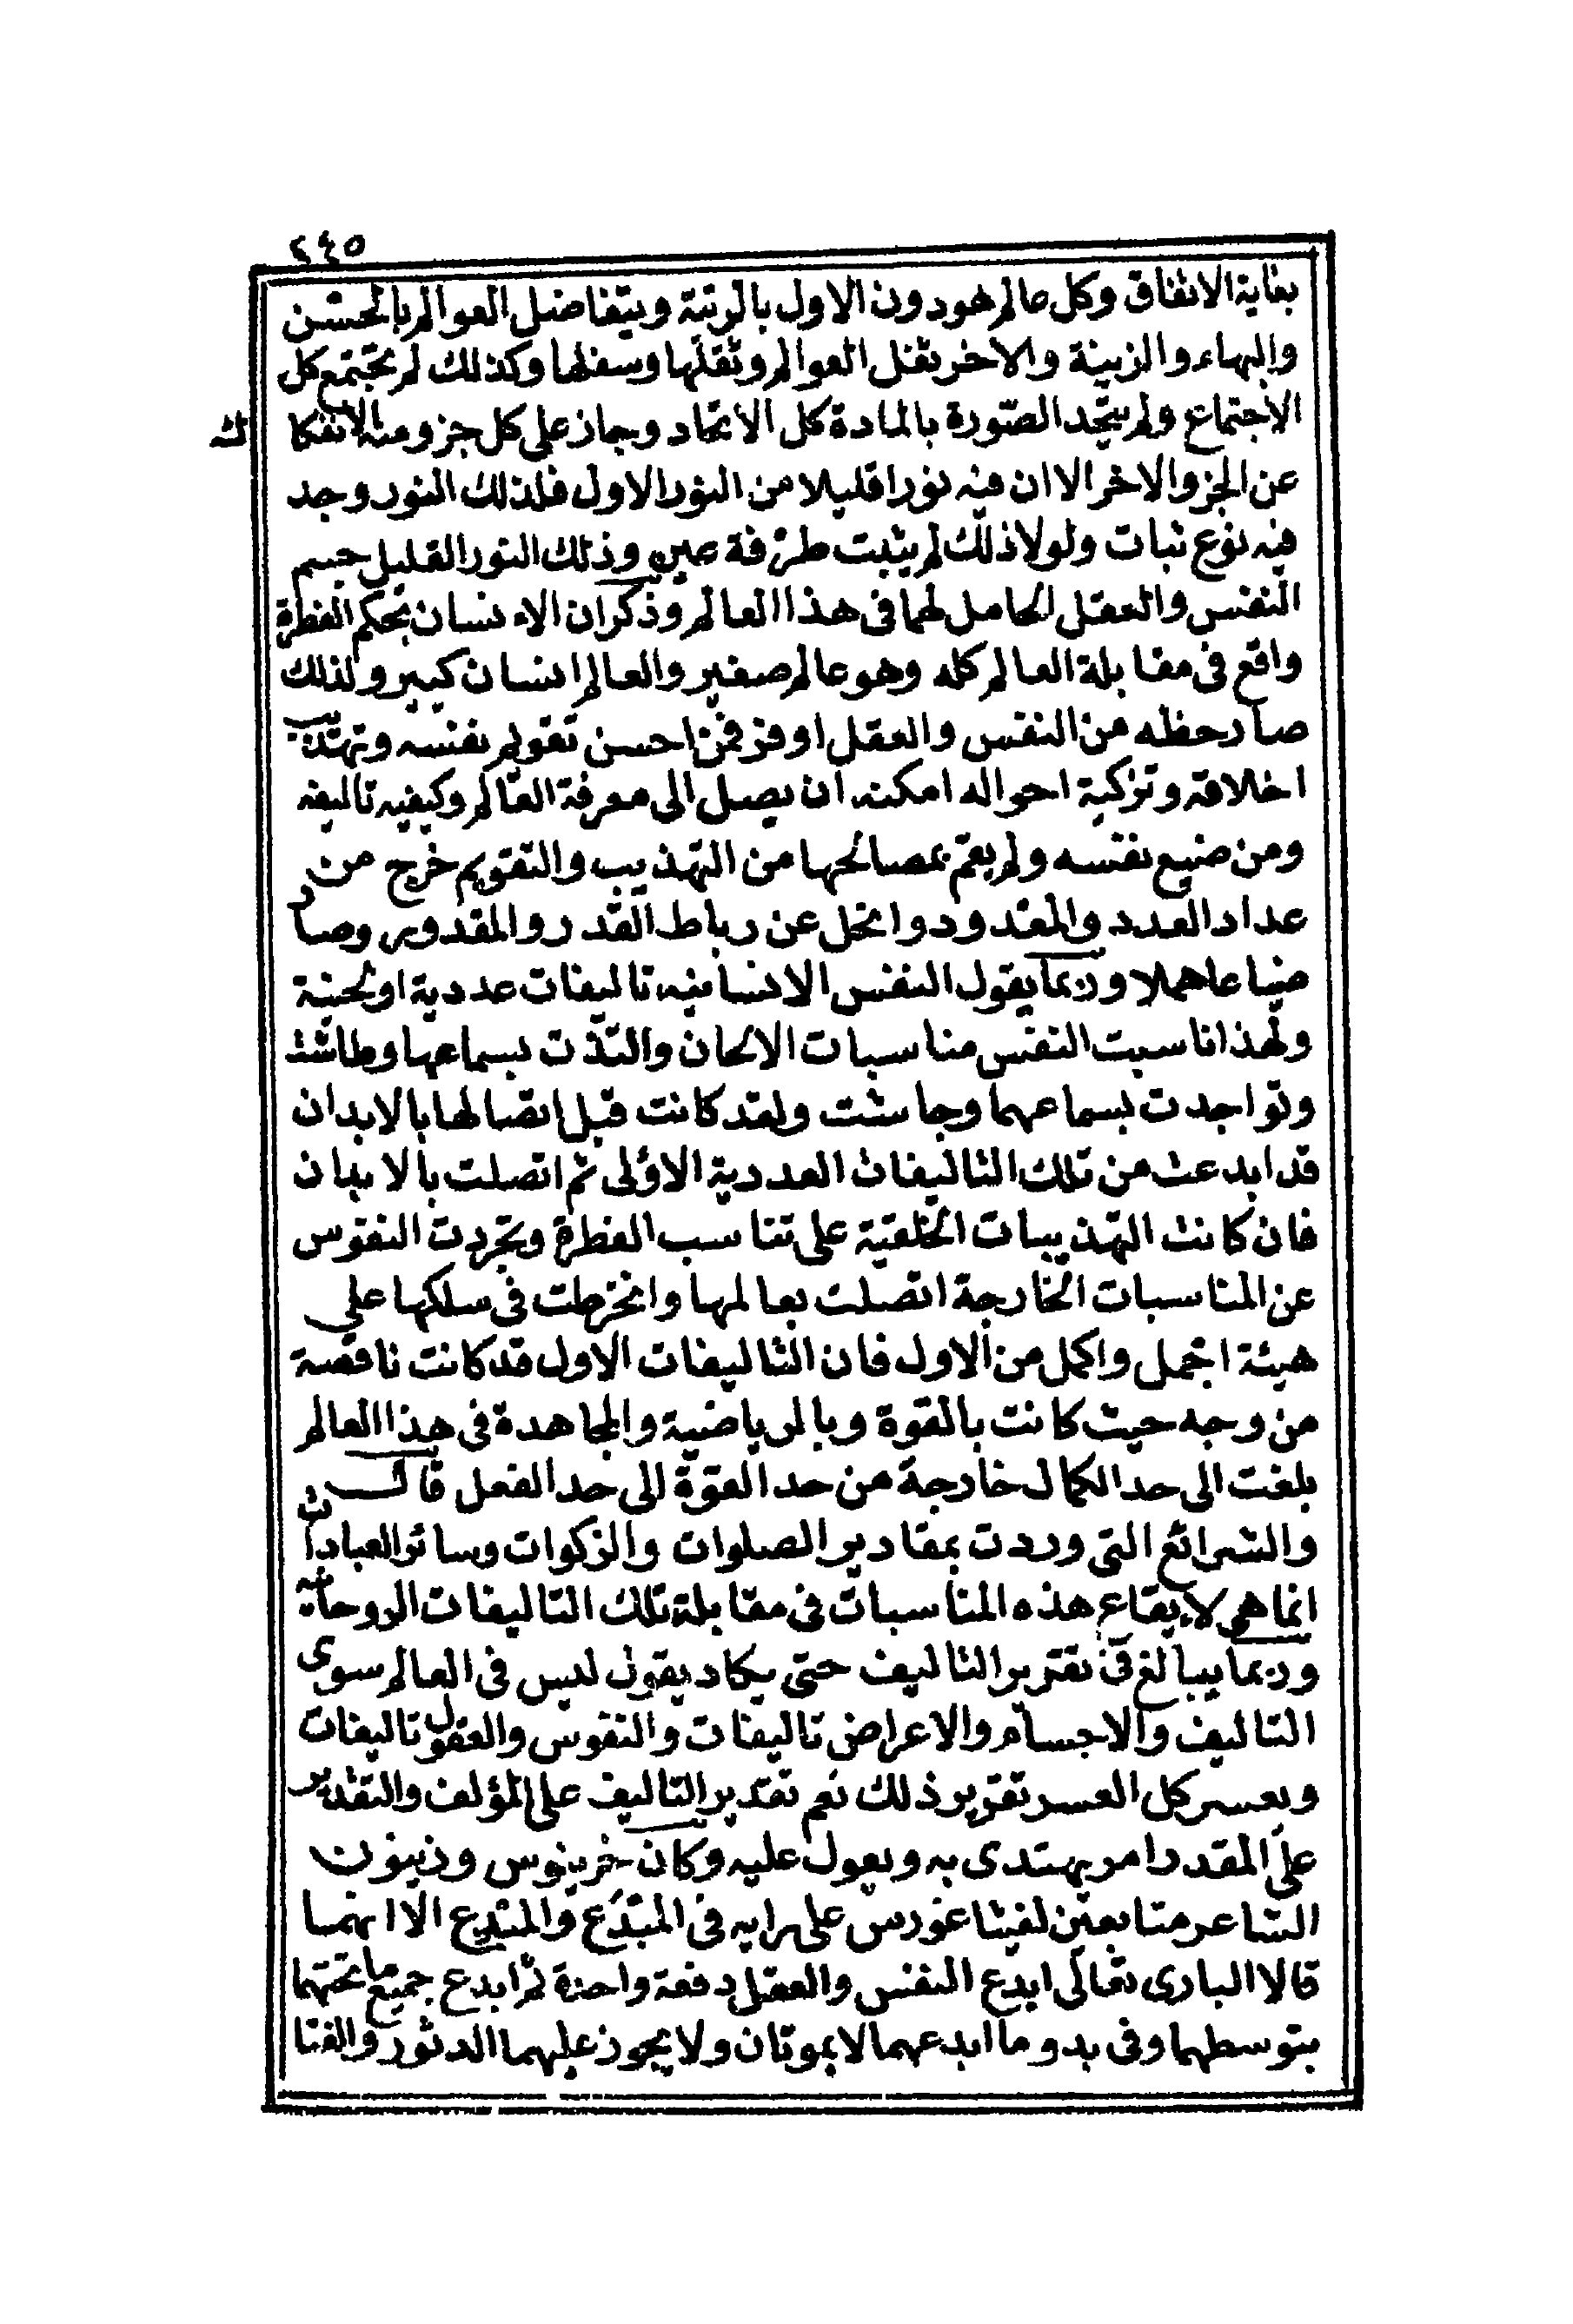 ٢٤٥
بغاية الاتفاق وكل عالم هو دون الاول بالرتبة ويتفاضل العوالم بالحسن
والبهاء والزينة والاخر ثفل العوالم وثقلها وسفلها وكذلك لم يجتمع كل
الاجتماع ولم يتحد الصورة بالمادة كل الاتحاد وجاز على كل جزو منه الانفكاك
عن الجزو الاخر الا ان فيه نورا قليلا من النور الاول فلذلك النور وجد
فيه نوع ثبات ولولا ذلك لم يثبت طرفة عين وذلك النور القليل جسم
النفس والعقل الحامل لهما فى هذا العالم وذكر ان الاءنسان بحكم الفطرة
واقع فى مقابلة العالم كله وهو عالم صغير والعالم انسان كبير ولذلك
صار حظه من النفس والعقل اوفر فمن احسن تقويم نفسه وتهذيب
اخلاقه وتزكية احواله امكنه ان يصل الى معرفة العالم وكيفيه تاليفه
ومن ضيع نفسه ولم يقم بمصالحها من التهذيب والتقويم خرج من
عداد العدد والمعدود وانحل عن رباط القدر والمقدور وصار
ضياعا هملا وربما يقول النفس الانسانيه تاليفات عددية اولحنية
ولهذا ناسبت النفس مناسبات الالحان والتذت بسماعها وطاشت
وتواجدت بسماعها وجاشت ولقد كانت قبل اتصالها بالابدان
قد ابدعت من تلك التاليفات العددية الاولى ثم اتصلت بالابدان
فان كانت التهذيبات الخلقية على تناسب الفطرة وتجردت النفوس
عن المناسبات الخارجة اتصلت بعالمها وانخرطت فى سلكها على
هيئة اجمل واكمل من الاول فان التاليفات الاول قد كانت ناقصة
من وجه حيث كانت بالقوة وبالرياضية والمجاهدة فى هذا العالم
بلغت الى حد الكمال خارجة من حد القوة الى حد الفعل قال
والشرائع التى وردت بمقادير الصلوات والزكوات وسائر العبادات
انما هى لايقاع هذه المناسبات فى مقابلة تلك التاليفات الروحانيه
وربما يبالغ فى تقرير التاليف حتى يكاد يقول ليس فى العالم سوى
التاليف والاجسام والاعراض تاليفات والنفوس والعقول تاليفات
ويعسر كل العسر تقرير ذلك نعم تقدير التاليف على المؤلف والتقدير
على المقدر امر يهتدى به ويعول عليه وكان خرينوس وزينون
الشاعر متابعين لفيثاغورس على رايه فى المبدع والمبتدع الا انهما
قالا البارى تعالى ابدع النفس والعقل دفعة واحدة ثم ابدع جميع ما تحتهما
بتوسطهما وفى بدو ما ابدعهما لا يموتان ولا يجوز عليهما الدثور والفنا